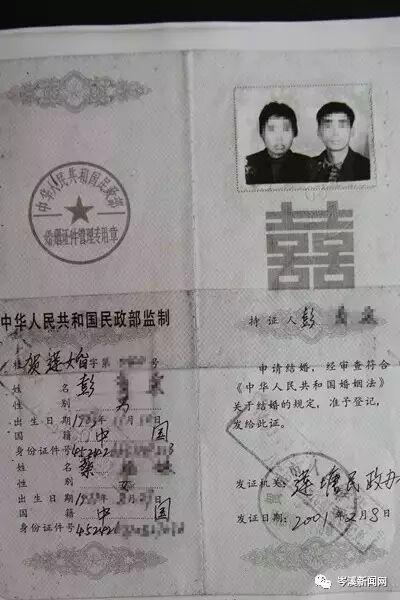 中华人民共和国民政部
婚姻证件管理专用章
中华人民共和国民政部监制
贺莲婚字第 号
姓名 彭
性别 男
出生日期 19
国籍 中国
身份证件号 4524
姓名 蔡
性别 女
出生日期 19
国籍 中国
身份证件号 45242
囍
持证人 彭
申请结婚，经审查符合
《中华人民共和国婚姻法》
关于结婚的规定，准予登记，
发给此证。
发证机关：莲塘民政办
发证日期：2001年2月8日
岑溪新闻网